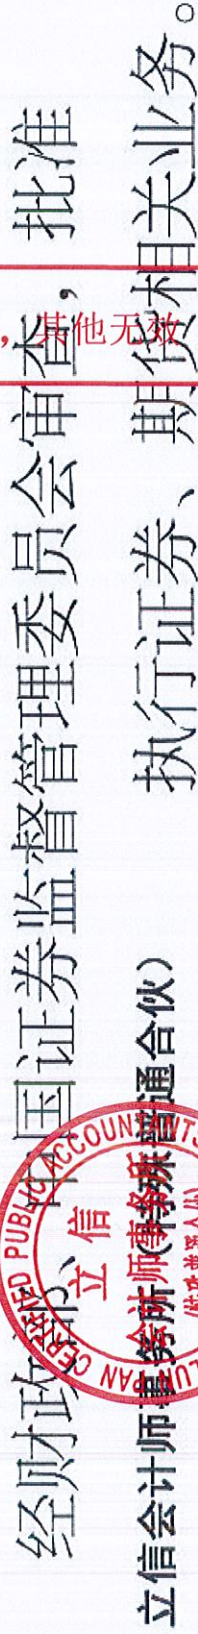 经财政部、中国证券监督管理委员会审查，批准
立信会计师事务所（特殊普通合伙） 执行证券、期货相关业务。
，其他无效
CERTIFIED PUBLIC ACCOUNTANTS
LUN PAN
立信
会计师事务所